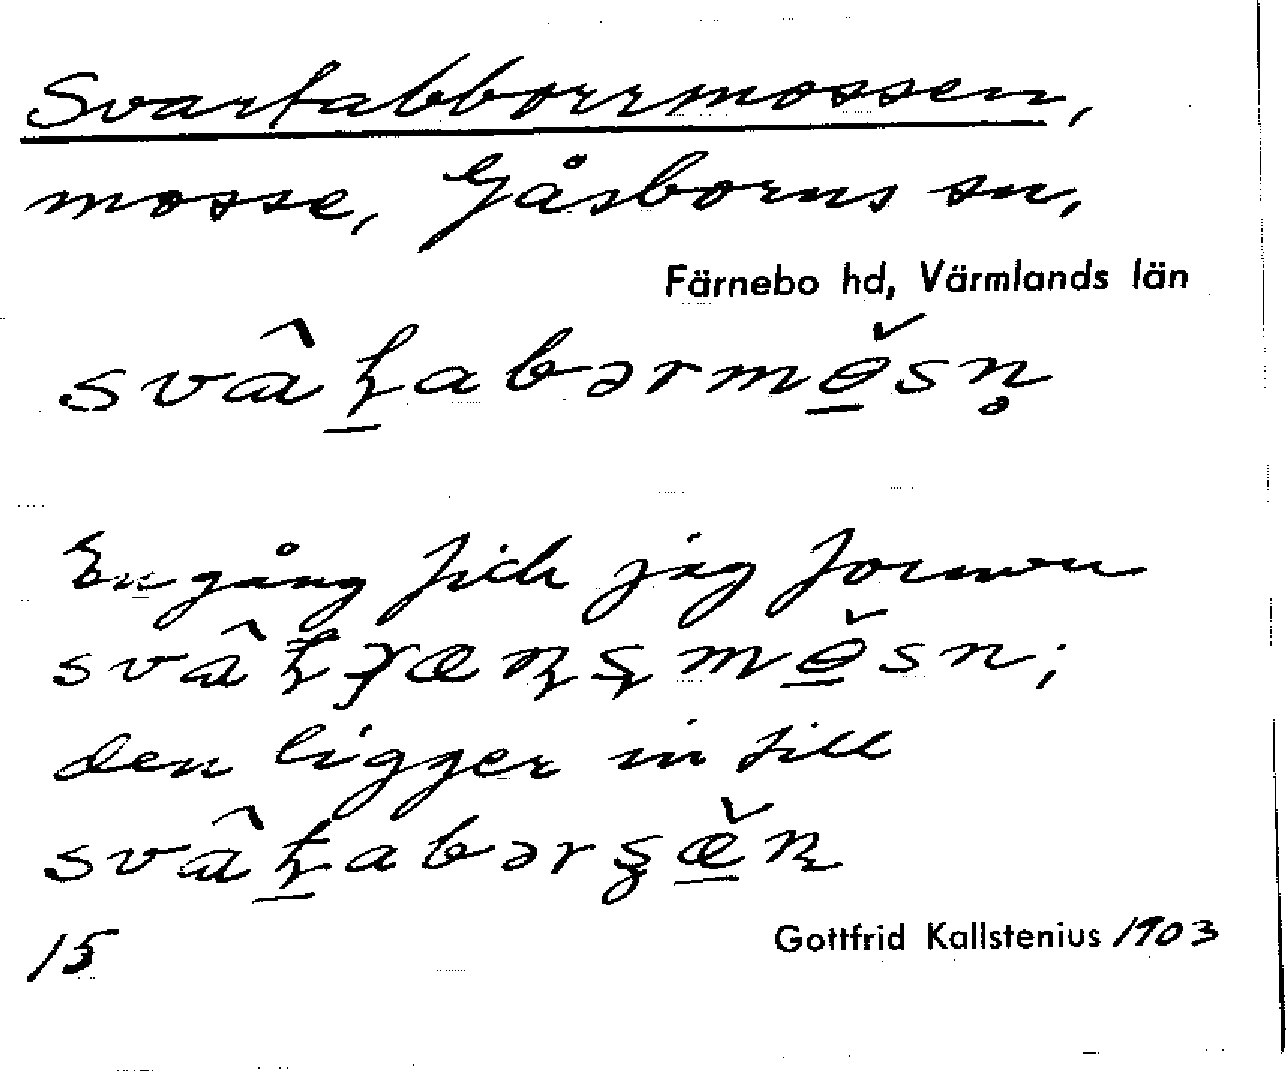 Svartabborrmossen,
mosse, Gåsborns sn,
Färnebo hd, Värmlands län
svâʈabərmö̌sn̥
En gång fick jag formen
den ligger in till
15
Gottfrid Kallstenius 1903